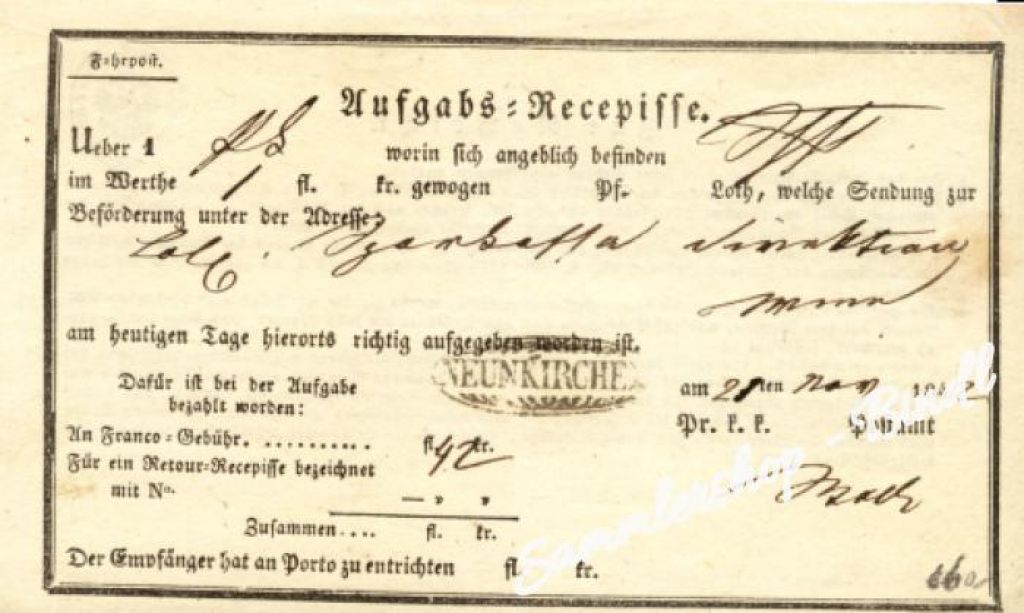 Fahrpost.
Aufgabs-Recepisse.
Ueber 1 worin sich angeblich befinden
im Werthe 1 fl. kr. gewogen Pf. Loth, welche Sendung zur
Beförderung unter der Adresse:
Sparkassa Direktion
Wien
am heutigen Tage hierorts richtig aufgegeben worden ist.
NEUNKIRCHEN
Dafür ist bei der Aufgabe
bezahlt worden:
am ten Nov 18
Pr. k. k. Postamt
An Franco-Gebühr. .......... fl. 42 kr.
Für ein Retour-Recepisse bezeichnet
mit No. — „ „
Zusammen.... fl. kr.
Der Empfänger hat an Porto zu entrichten fl. kr.
Sammlershop - Bindl